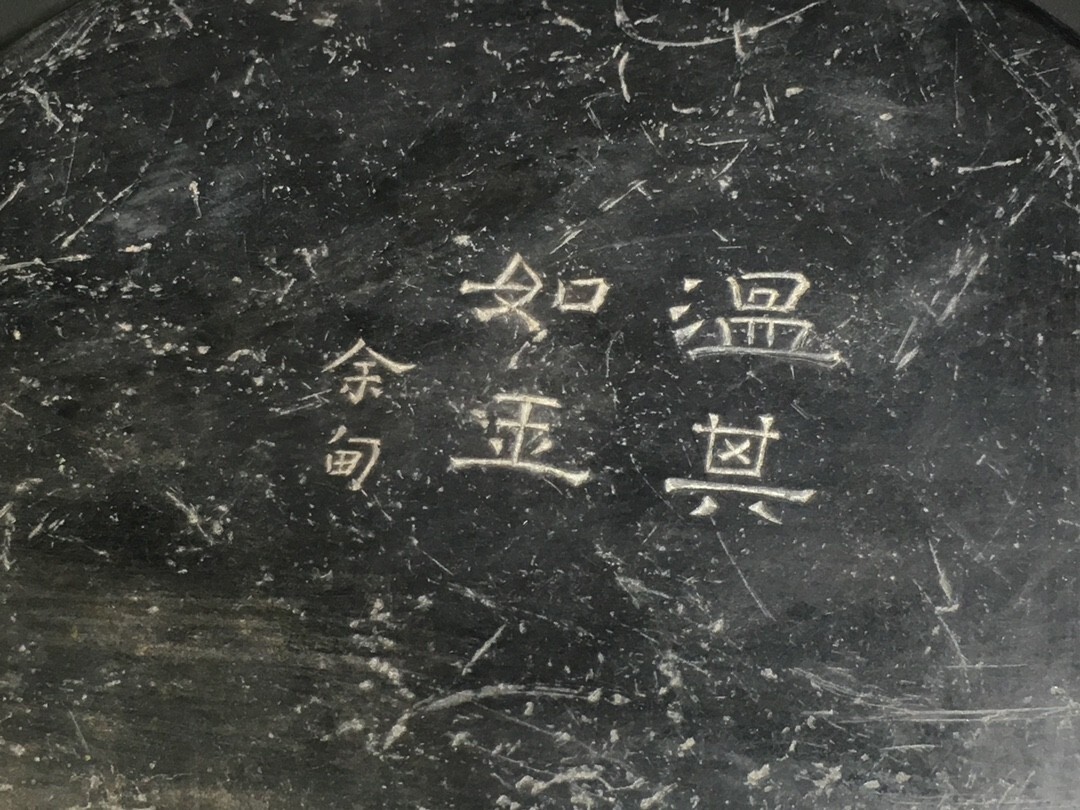 溫其
如玉
余甸